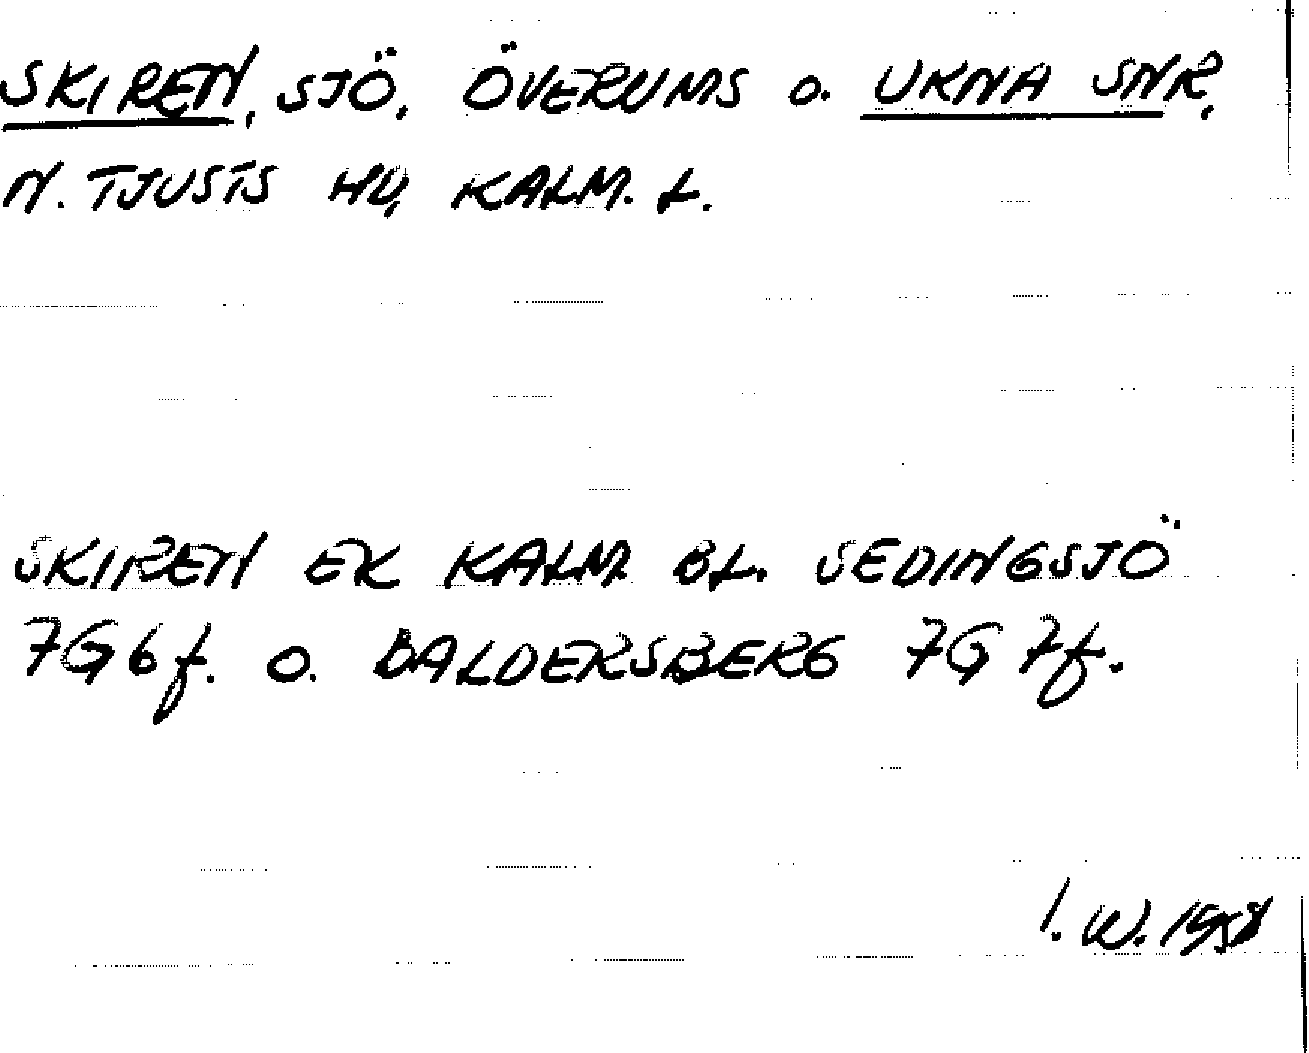 SKIREN, SJÖ, ÖVERUMS o. UKNA SNR,
N. TJUSTS HD, KALM. L.
SKIREN EK KALM. BL. SEDINGSJÖ
7G 6f. o. BALDERSBERG 7G 7f.
I. W.